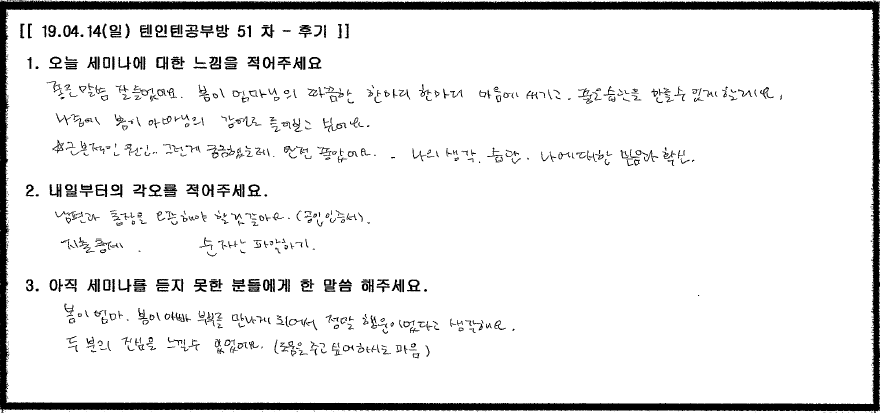 [[ 19.04.14(일) 텐인텐공부방 51 차 - 후기 ]]
1. 오늘 세미나에 대한 느낌을 적어주세요
좋은말씀 잘 들었어요. 봄이 엄마님의 따끔한 한마디 한마디 마음에 새기고, 좋은습관을 만들수 있게 할래요,
나중에 봄이 아빠님의 강연도 들어보고 싶어요.
☆근본적인 원인.. 그런게 궁금했는데. 완전 좋았어요. - 나의 생각, 습관. 나에대한 믿음과 확신.
2. 내일부터의 각오를 적어주세요.
남편과 통장을 오픈해야 할것같아요. (공인인증서).
지출통제. 순자산 파악하기.
3. 아직 세미나를 듣지 못한 분들에게 한 말씀 해주세요.
봄이엄마. 봄이아빠 부부를 만나게 되어서 정말 행운이었다고 생각해요.
두 분의 진심을 느낄수 있었어요. (도움을 주고 싶어하시는 마음)